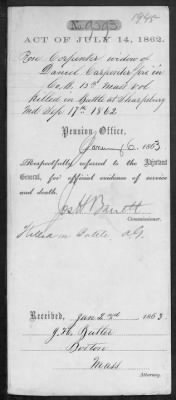 No. 9595
ACT OF JULY 14, 1862.
Carpenter widow of
Daniel Carpenter private in
Co. 13th Mass Vol
Killed in Battle at Sharpsburg
Md Sep 17th 1862
Pension Office,
1863
Respectfully referred to the Adjutant
General, for official evidence of service
and death.
Jos H. Barrett
Commissioner.
Killed in battle
Received, Jan 23d 1863
Butler
Boston
Mass
Attorney.